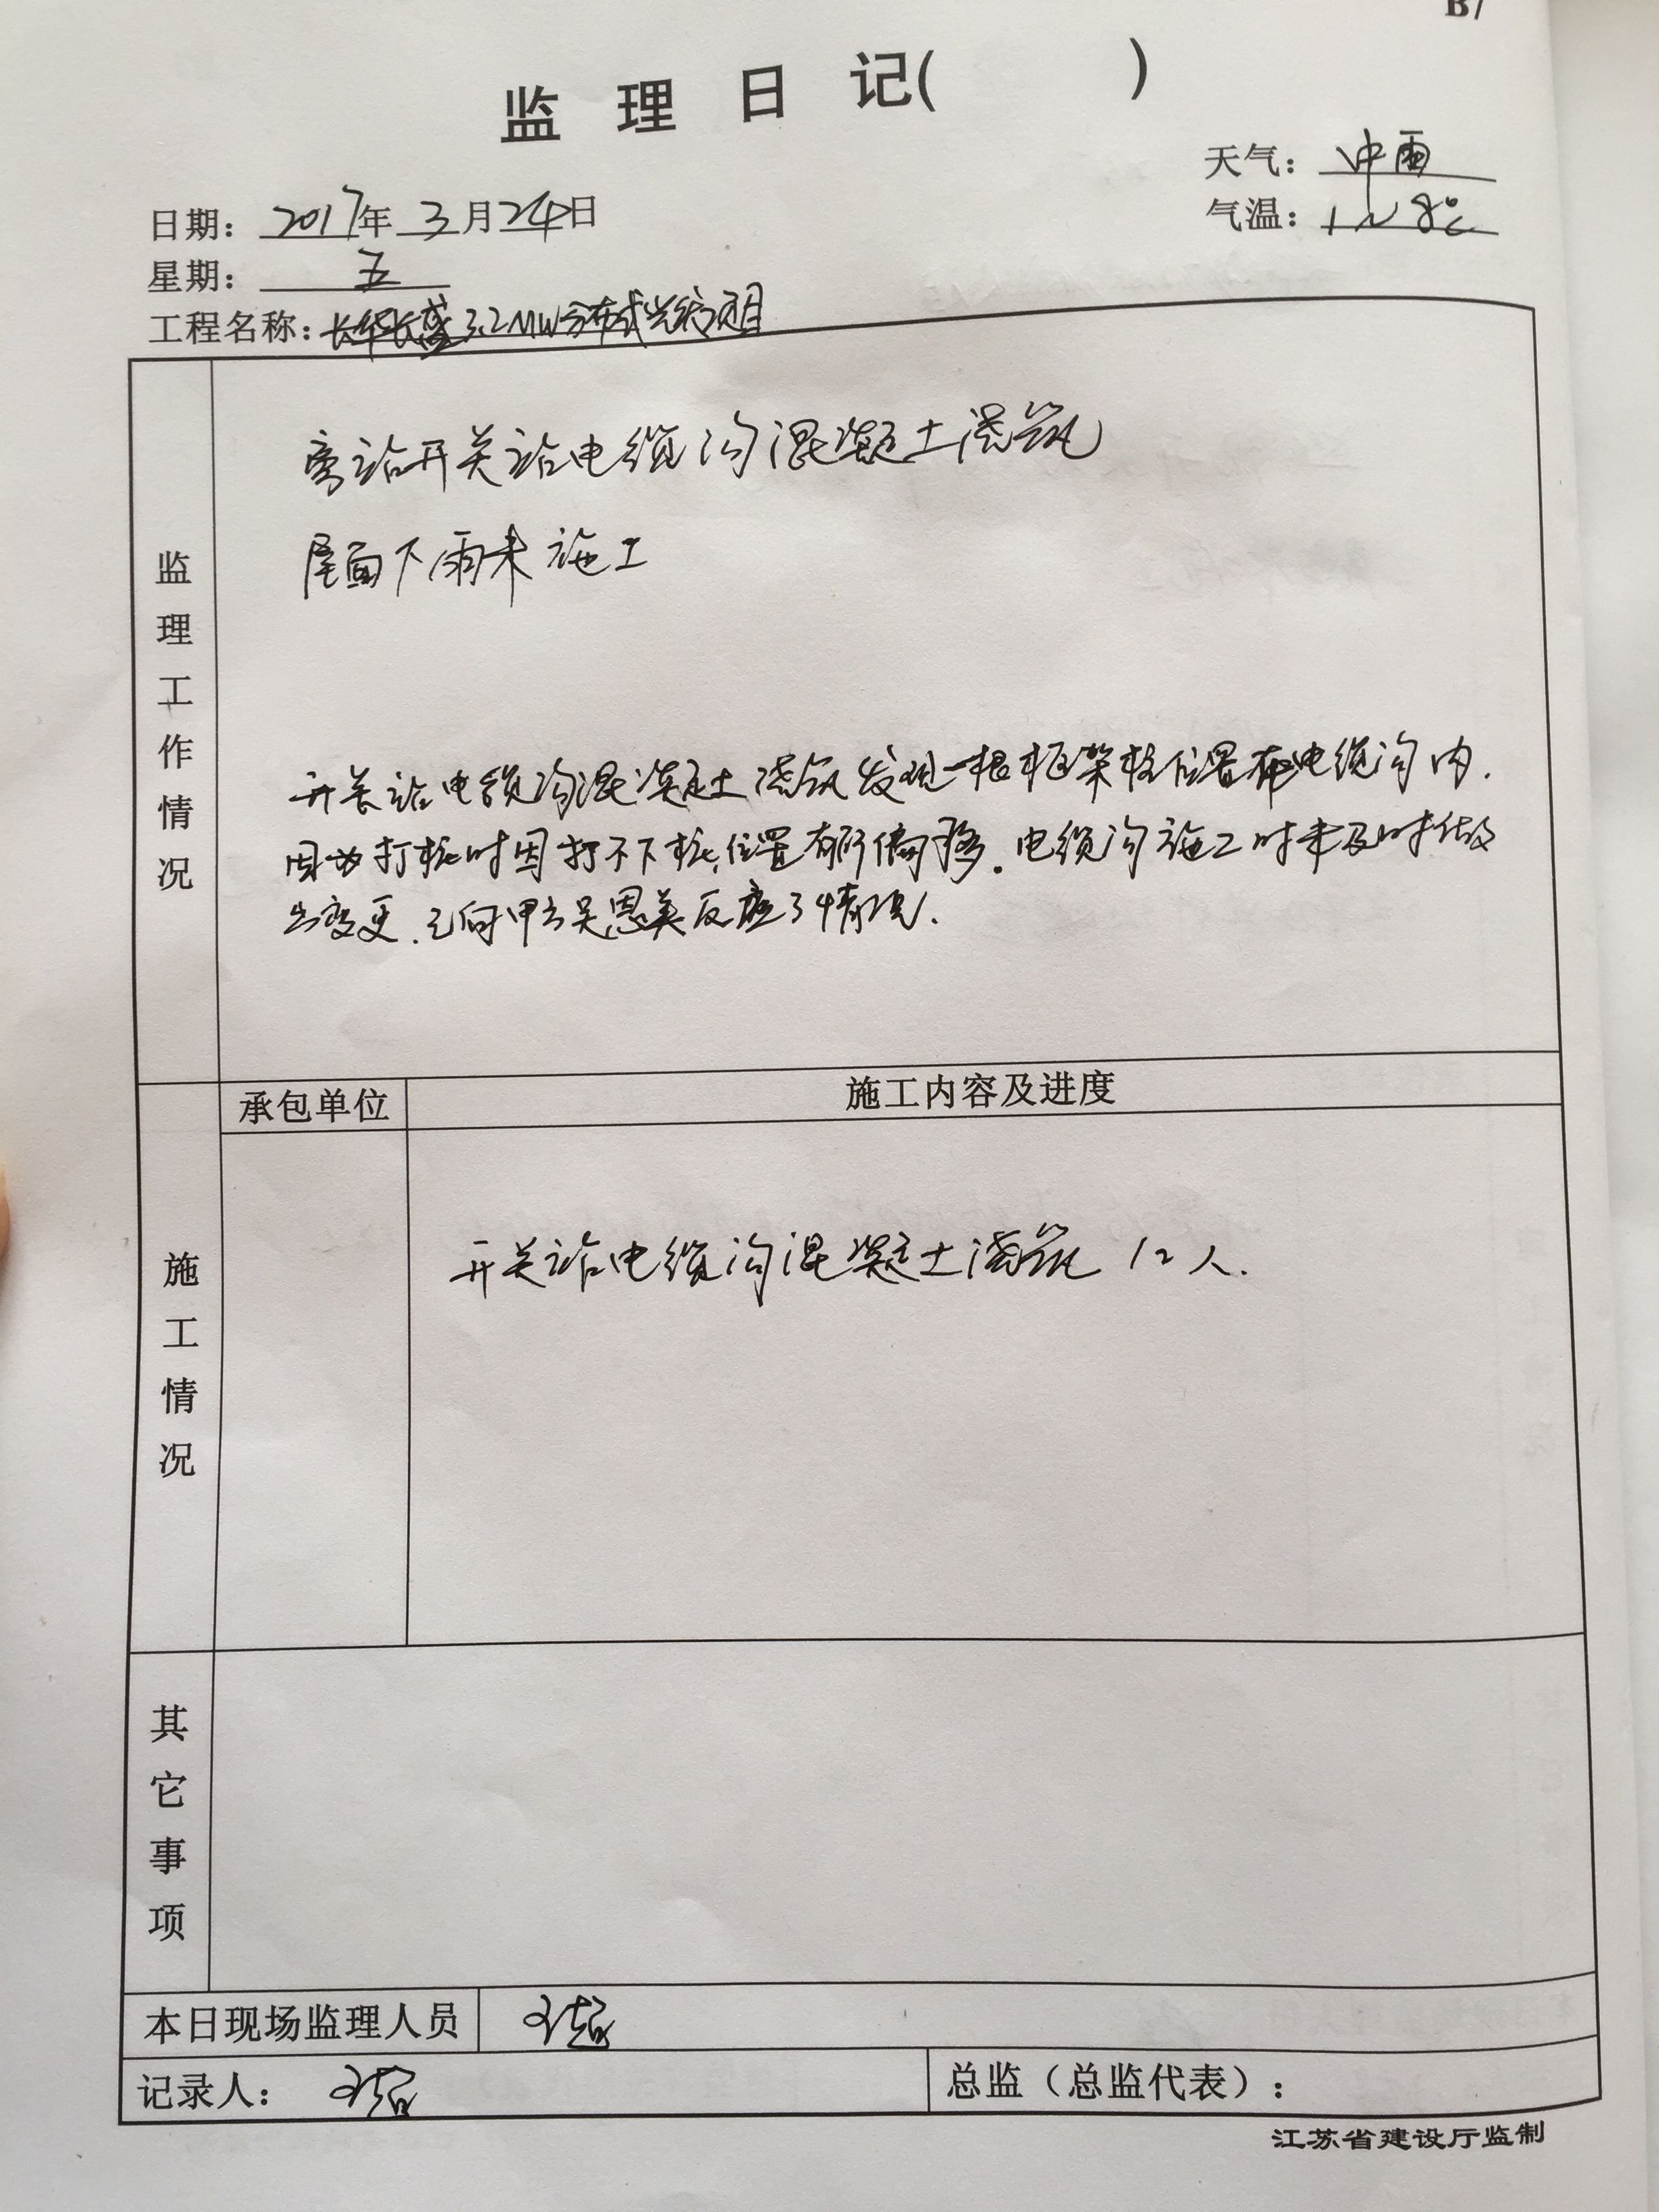 B7
监理日记( )
天气：中雨
日期：2017年3月24日
气温：1~8℃
星期：五
工程名称：长华长盛3.2MW分布式光伏项目
监理工作情况
旁站开关站电缆沟混凝土浇筑
屋面下雨未施工
开关站电缆沟混凝土浇筑发现一根框架桩位置在电缆沟内.
因为打桩时因打不下桩,位置有所偏移.电缆沟施工时未及时做
出变更.已向甲方吴恩美反应了情况.
承包单位 施工内容及进度
施工情况
开关站电缆沟混凝土浇筑 12人.
其它事项
本日现场监理人员
记录人： 总监（总监代表）：
江苏省建设厅监制